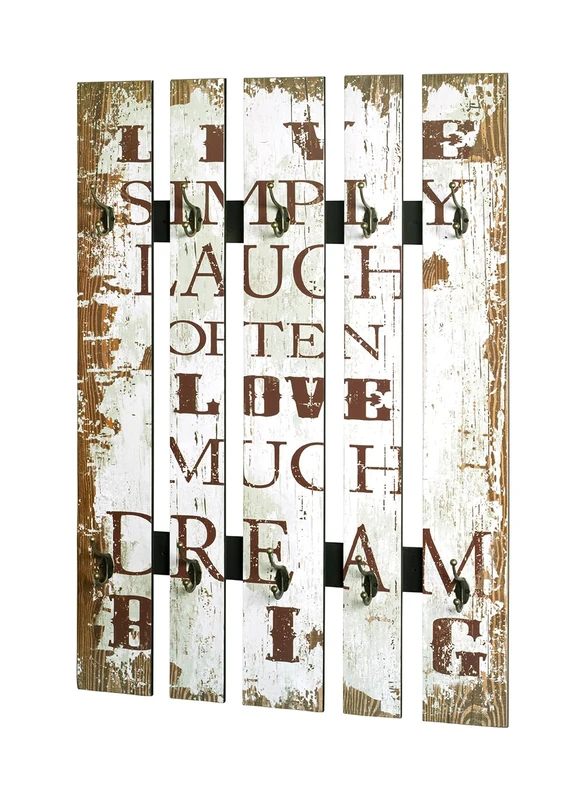 LIVE
SIMPLY
LAUGH
OFTEN
LOVE
MUCH
DREAM
BIG